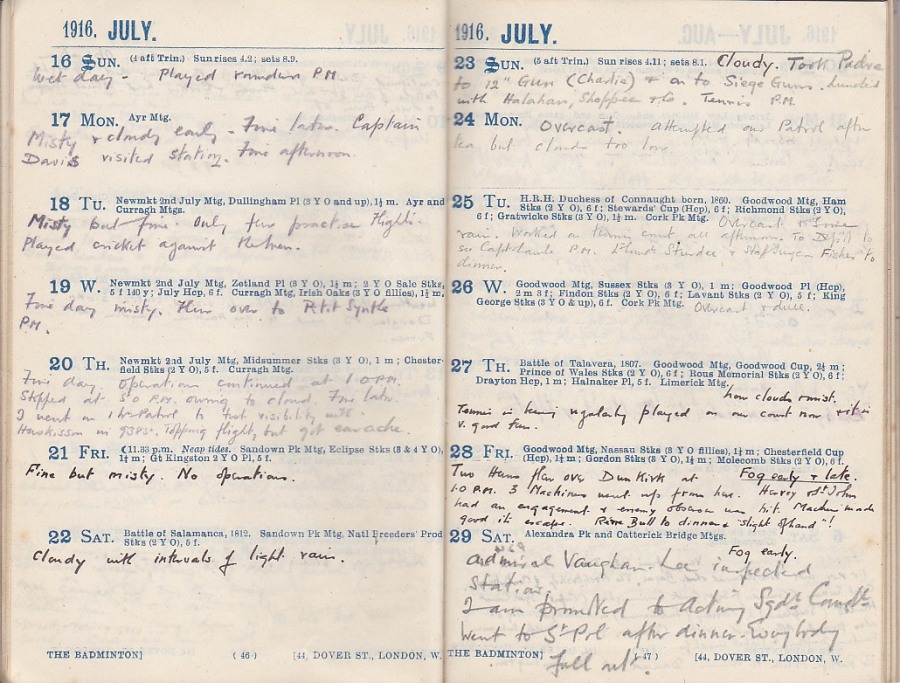 1916. JULY.
16 SUN. (4 aft Trin.) Sun rises 4.2; sets 8.9.
Wet day - Played P.M
17 MON. Ayr Mtg.
Misty & cloudy early - Fine later. Captain
Davis visited station. Fine afternoon.
18 TU. Newmkt 2nd July Mtg, Dullingham Pl (3 Y O and up), 1½ m. Ayr and
Curragh Mtgs.
Misty but fine. Only few practice flights.
Played cricket against
19 W. Newmkt 2nd July Mtg, Zetland Pl (3 Y O), 1¼ m; 2 Y O Sale Stks,
5 f 140 y; July Hcp, 6 f. Curragh Mtg, Irish Oaks (3 Y O fillies), 1½ m.
Fine day misty. Flew over to Petit Synthe
P.M.
20 TH. Newmkt 2nd July Mtg, Midsummer Stks (3 Y O), 1 m; Chester-
field Stks (2 Y O), 5 f. Curragh Mtg.
Fine day. Operations continued at 1.0 P.M.
Stopped at 5.0 P.M. owing to cloud. Fine later.
I went on 1 hr Patrol to test visibility with
Huskisson in 9385. Topping flight, but got earache.
21 FRI. ☾11.33 p.m. Neap tides. Sandown Pk Mtg, Eclipse Stks (3 & 4 Y O),
1¼ m; Gt Kingston 2 Y O Pl, 5 f.
Fine but misty. No operations.
22 SAT. Battle of Salamanca, 1812. Sandown Pk Mtg. Natl Breeders' Prod
Stks (2 Y O), 5 f.
Cloudy with intervals of light rain.
THE BADMINTON] ( 46 ) [44, DOVER ST., LONDON, W.
1916. JULY.
23 SUN. (5 aft Trin.) Sun rises 4.11; sets 8.1. Cloudy. Took Padre
to 12" Gun (Charlie) & on to Siege Guns. Lunched
with Halahan, Shoppee & Co. Tennis P.M.
24 MON. Overcast. Attempted one Patrol after
tea but clouds too low.
25 TU. H.R.H. Duchess of Connaught born, 1860. Goodwood Mtg, Ham
Stks (2 Y O), 6 f; Stewards' Cup (Hcp), 6 f; Richmond Stks (2 Y O),
6 f; Gratwicke Stks (3 Y O), 1½ m. Cork Pk Mtg. Overcast & some
rain. Worked on tennis court all afternoon. To to
see Capt P.M. & Staff Surgeon Fisher to
dinner.
26 W. Goodwood Mtg, Sussex Stks (3 Y O), 1 m; Goodwood Pl (Hcp),
2 m 3 f; Findon Stks (2 Y O), 6 f; Lavant Stks (2 Y O), 5 f; King
George Stks (3 Y O & up), 6 f. Cork Pk Mtg. Overcast & dull.
27 TH. Battle of Talavera, 1807. Goodwood Mtg, Goodwood Cup, 2½ m;
Prince of Wales Stks (2 Y O), 6 f; Rous Memorial Stks (2 Y O), 6 f;
Drayton Hcp, 1 m; Halnaker Pl, 5 f. Limerick Mtg.
Low clouds & mist.
Tennis is being regularly played on our court now & it is
v. good fun.
28 FRI. Goodwood Mtg, Nassau Stks (3 Y O fillies), 1½ m; Chesterfield Cup
(Hcp), 1¼ m; Gordon Stks (3 Y O), 1½ m; Molecomb Stks (2 Y O), 6 f.
Two Huns flew over Dunkirk at Fog early & late.
1.0 P.M. 3 Machines went up from here. Harvey & St John
had an engagement & enemy observer was hit. Machine made
good its escape. Bull to dinner & "slight of hand"!
29 SAT. Alexandra Pk and Catterick Bridge Mtgs.
Fog early.
Admiral Vaughan-Lee inspected
station.
I am promoted to Acting Sqdn Comdr
Went to St Pol after dinner. Everybody
full out.
THE BADMINTON] ( 47 ) [44, DOVER ST., LONDON, W.